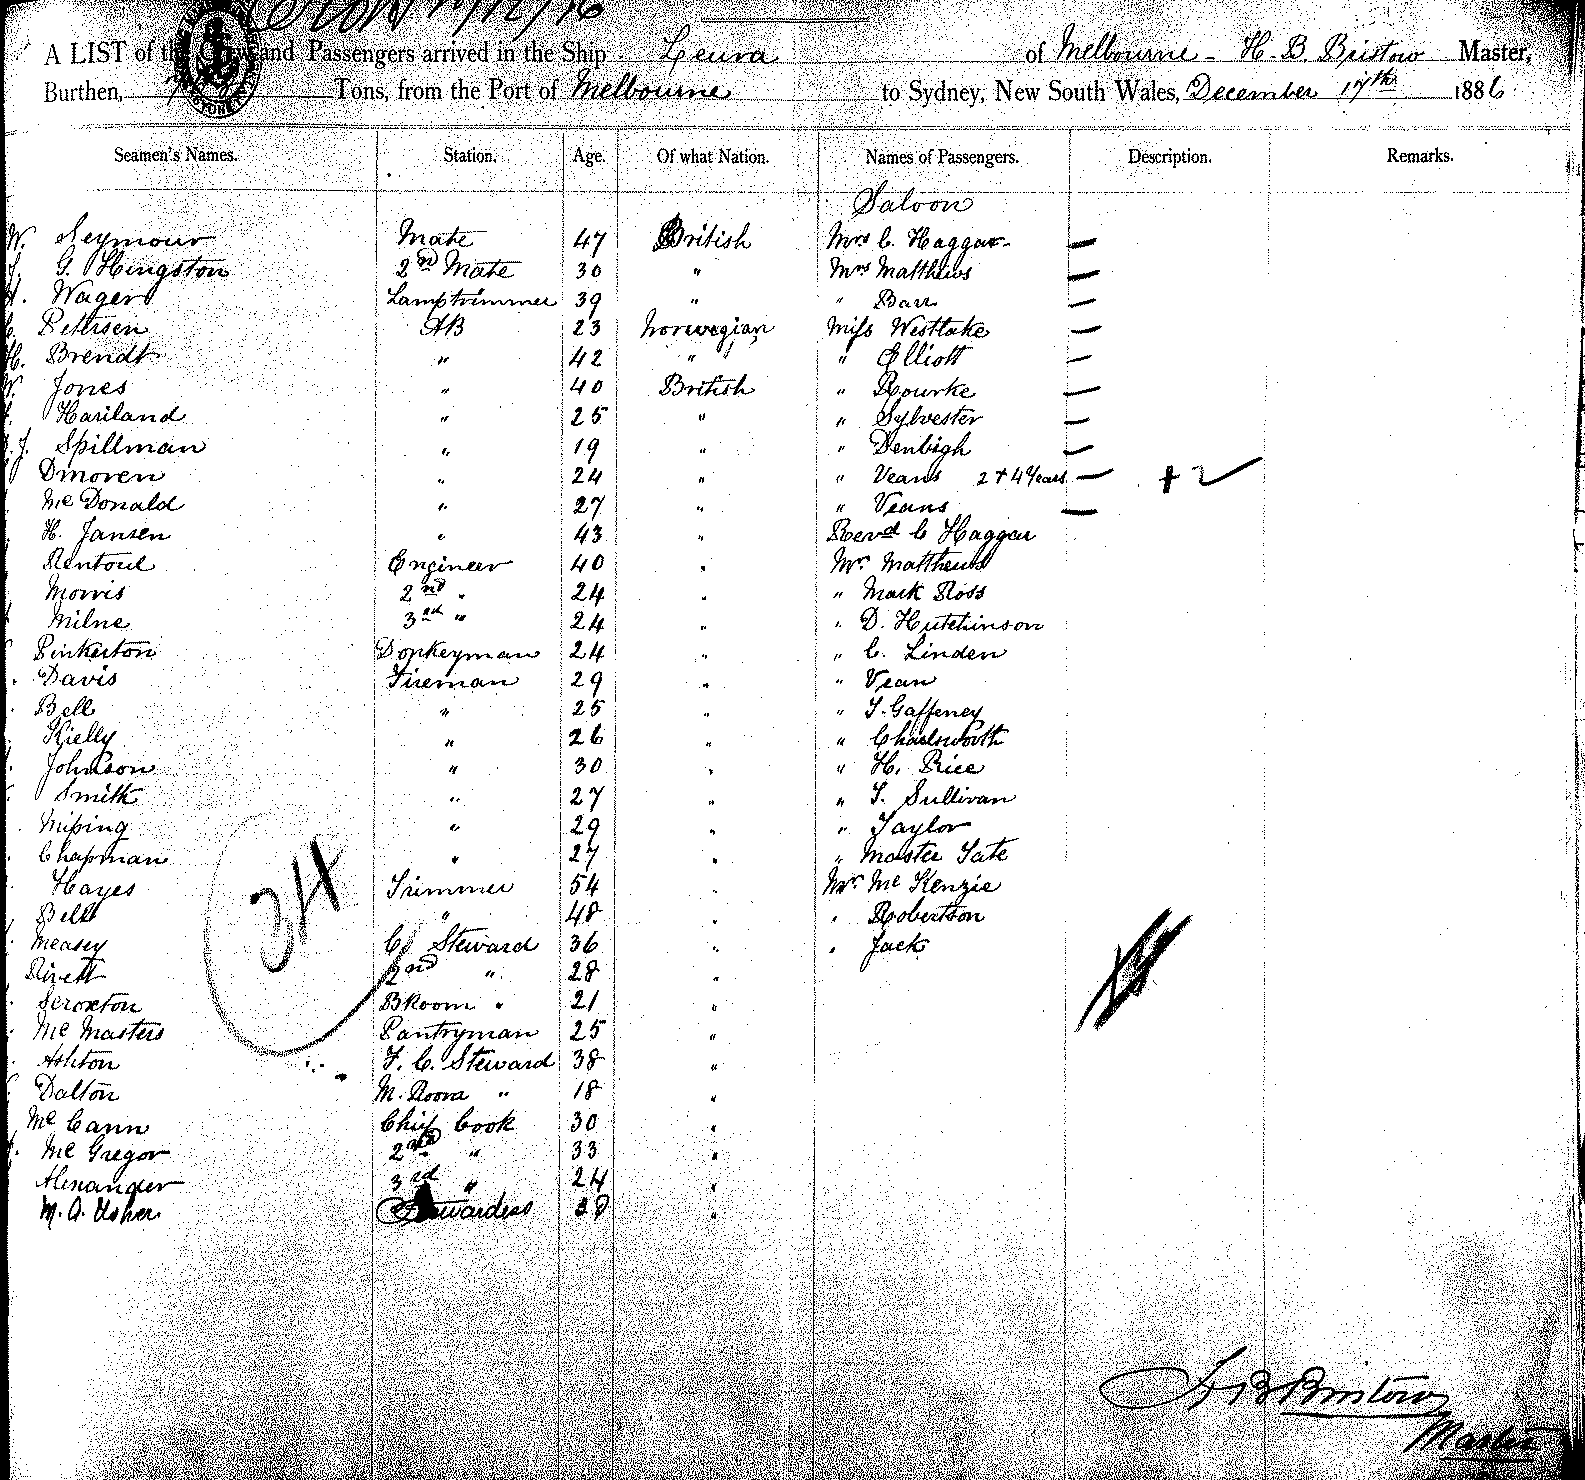 A LIST of the and Passengers arrived in the Ship Leura of Melbourne - H. B. Bristow Master,
Burthen, Tons, from the Port of Melbourne to Sydney, New South Wales, December 17th 1886
Seamen's Names. Station. Age. Of what Nation. Names of Passengers. Description. Remarks.
Saloon
W. Seymour Mate 47 British Mrs C. Haggar —
G. Hingston 2nd Mate 30 " Mrs Matthews —
Wager Lamptrimmer 39 " " Barr —
Petersen AB 23 Norwegian Miss Westlake —
H. Brendt " 42 " " Elliott —
W. Jones " 40 British " Rourke —
Hariland " 25 " " Sylvester —
J. Spillman " 19 " " Denbigh —
Dmoren " 24 " " Veans 2 + 4 Years — + 2
McDonald " 27 " " Veans —
H. Jansen " 43 " Revd C Haggar
Rentoul Engineer 40 " Mr Matthews
Morris 2nd " 24 " " Mark Ross
Milne 3rd " 24 " " D. Hutchinson
Pinkerton Donkeyman 24 " " C. Linden
Davis Fireman 29 " " Vean
Bell " 25 " " T. Gaffeney
Kielly " 26 " " Chadsworth
Johnson " 30 " " H. Price
Smith " 27 " " T. Sullivan
" 29 " " Taylor
Chapman " 27 " " Master Tate
Hayes Trimmer 54 " Mr McKenzie
Bell " 48 " " Robertson
Measey C. Steward 36 " " Jack
Rivett 2nd " 28 "
Scroxton BRoom " 21 "
McMasters Pantryman 25 "
Ashton F. C. Steward 38 "
Dalton M. Room " 18 "
McCann Chief Cook 30 "
McGregor 2nd " 33 "
Alexander 3rd " 24 "
M. A. Usher Stewardess 28 "
34
H B Bristow
Master